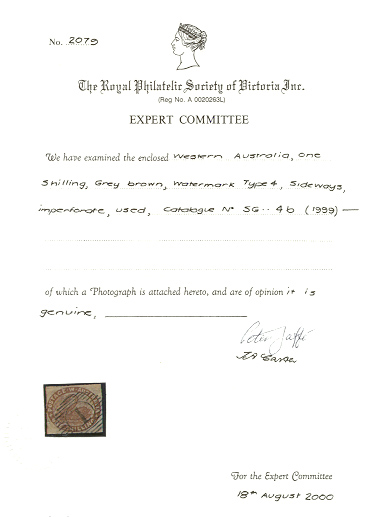 No. 2079
The Royal Philatelic Society of Victoria Inc.
(Reg No. A 0020263L)
EXPERT COMMITTEE
We have examined the enclosed Western Australia, One
Shilling, Grey brown, Watermark Type 4, Sideways,
imperforate, used, Catalogue No SG.. 4b (1999)—
of which a Photograph is attached hereto, and are of opinion it is
genuine,
For the Expert Committee
18th August 2000